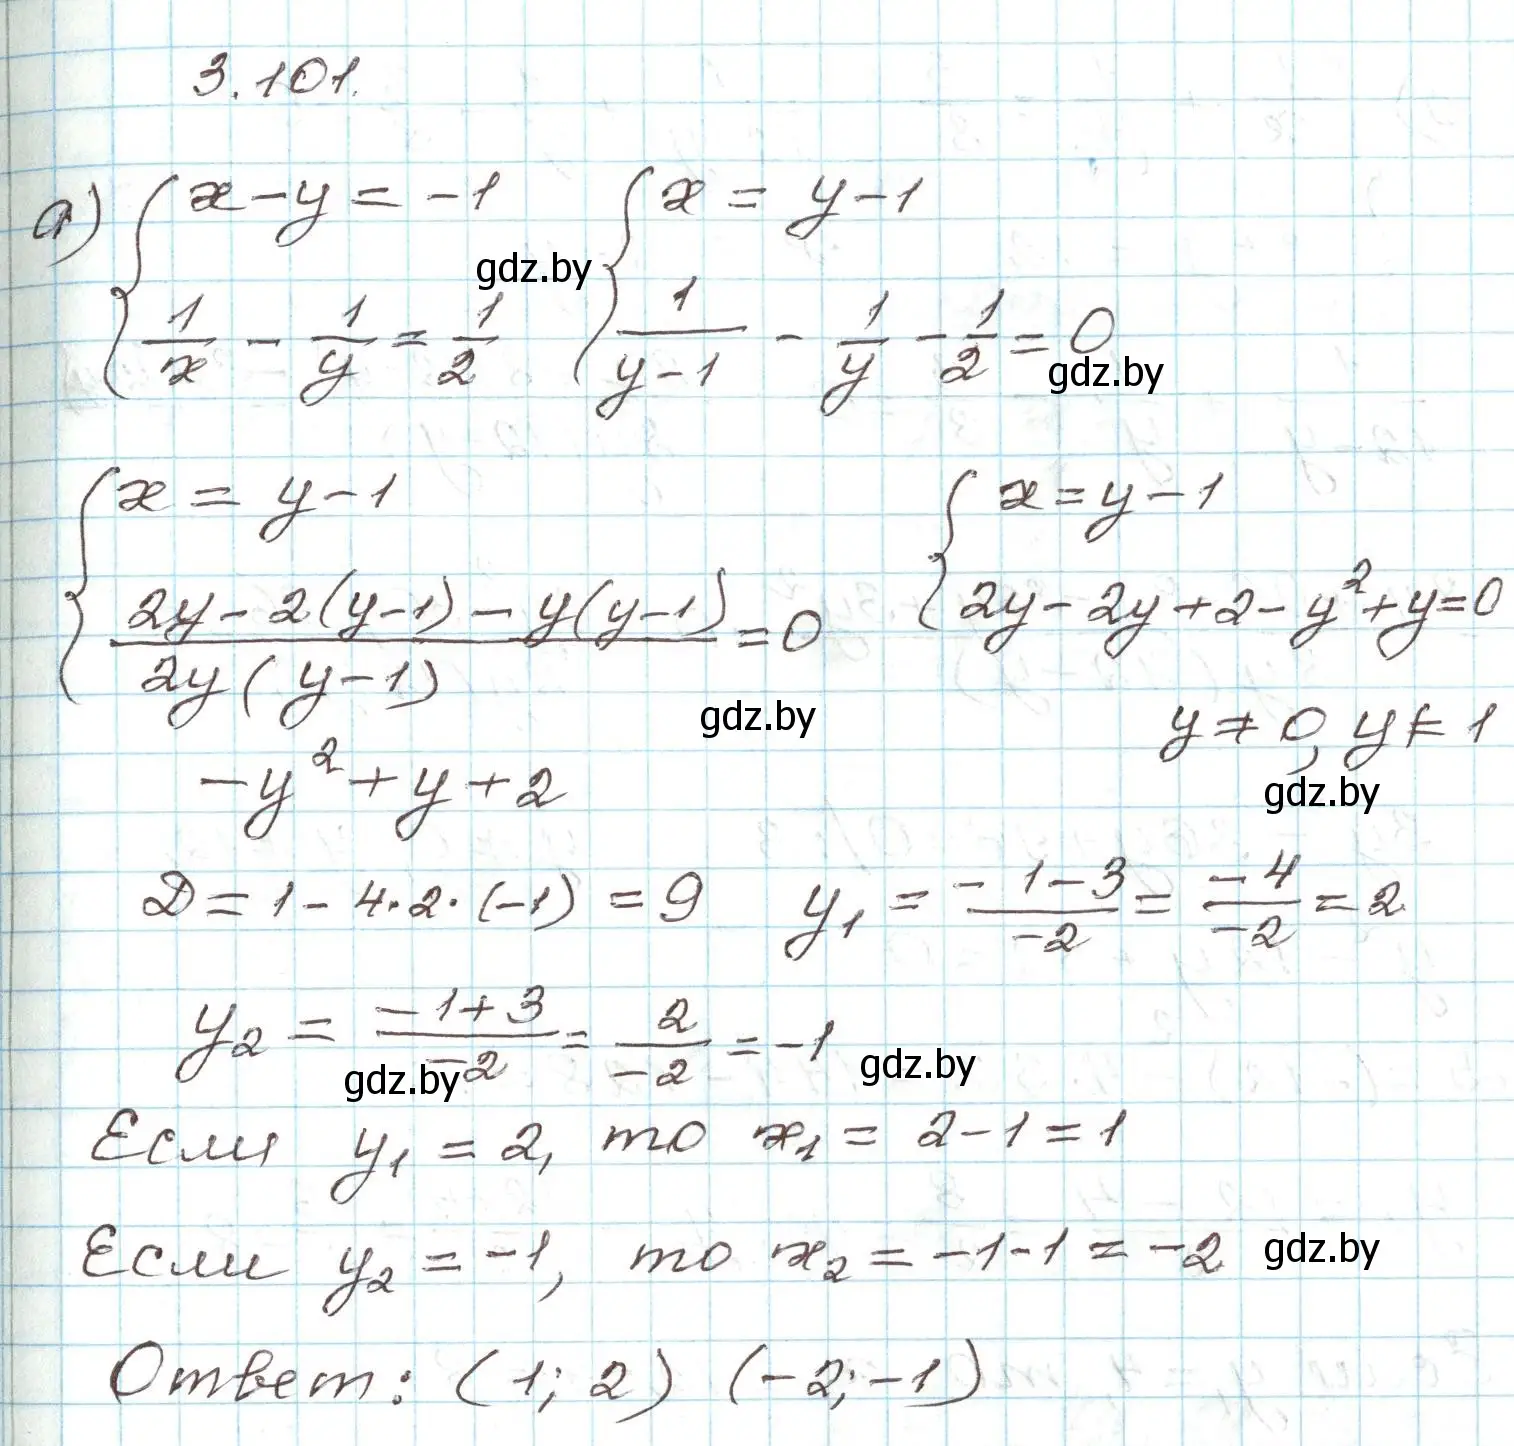 3.101.
а) { x - y = -1    { x = y - 1
1/x - 1/y = 1/2    1/(y-1) - 1/y - 1/2 = 0
gdz.by
gdz.by
{ x = y - 1    { x = y - 1
(2y - 2(y-1) - y(y-1))/(2y(y-1)) = 0    2y - 2y + 2 - y² + y = 0
gdz.by    y ≠ 0, y ≠ 1
-y² + y + 2    gdz.by
D = 1 - 4·2·(-1) = 9    y₁ = (-1-3)/(-2) = (-4)/(-2) = 2
y₂ = (-1+3)/(-2) = 2/(-2) = -1
gdz.by    gdz.by
Если y₁ = 2, то x₁ = 2 - 1 = 1
Если y₂ = -1, то x₂ = -1 - 1 = -2 gdz.by
Ответ: (1; 2) (-2; -1)